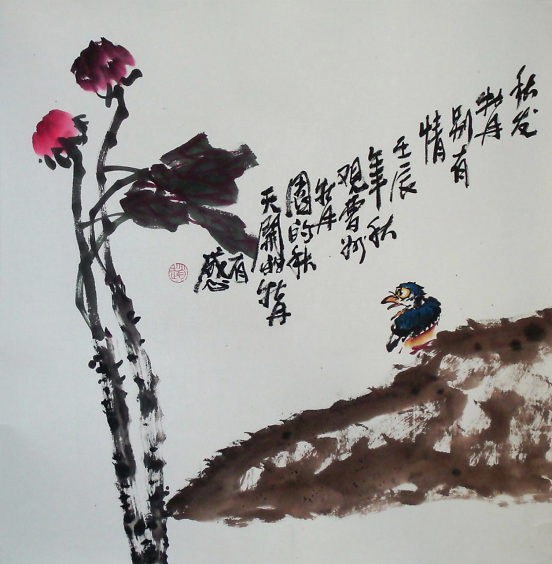 秋发
牡丹
别有
情
壬辰
年秋
观曹州
牡丹
園的秋
天開的牡丹
有
感